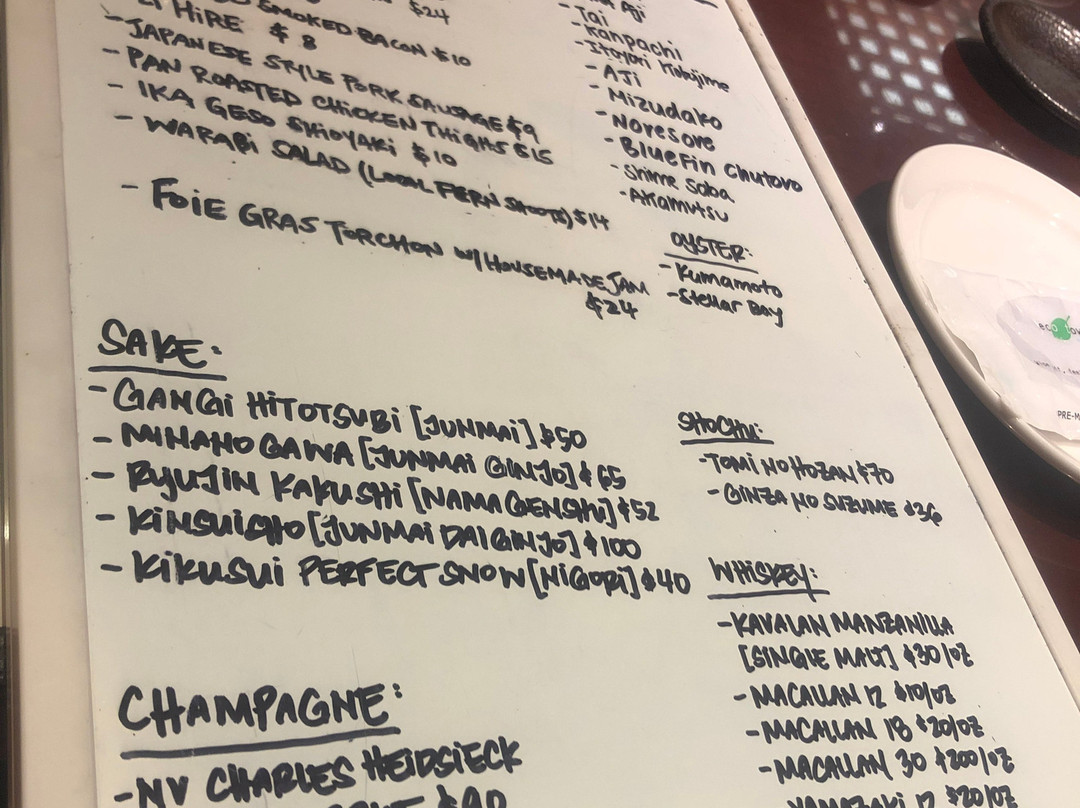 $24
SMOKED BACON $10
HIRE $8
- JAPANESE STYLE PORK SAUSAGE $9
- PAN ROASTED CHICKEN THIGHS $15
- IKA GESO SHIOYAKI $10
- WARABI SALAD (LOCAL FERN SHOOTS) $14
- FOIE GRAS TORCHON W/ HOUSEMADE JAM
$24
Aji
- Tai
- Kanpachi
- Itoyori Kobujime
- AJI
- Mizudako
- Noresore
- BlueFin Chutoro
- Shime Saba
- Akamutsu
OYSTER:
- Kumamoto
- Stellar Bay
SAKE:
- GANGI HITOTSUBI [JUNMAI] $50
- MINANO GAWA [JUNMAI GINJO] $65
- RYUJIN KAKUSHI [NAMA GENSHU] $52
- KINSUICHO [JUNMAI DAIGINJO] $100
- KIKUSUI PERFECT SNOW [NIGORI] $40
SHOCHU:
- TOMI NO HOZAN $70
- GINZA NO SUZUME $36
WHISKEY:
- KAVALAN MANZANILLA
[SINGLE MALT] $30/OZ
- MACALLAN 12 $10/OZ
- MACALLAN 18 $20/OZ
- MACALLAN 30 $200/OZ
YAMAZAKI 12 $20/OZ
CHAMPAGNE:
- NV CHARLES HEIDSIECK
$90
eco
PRE-M